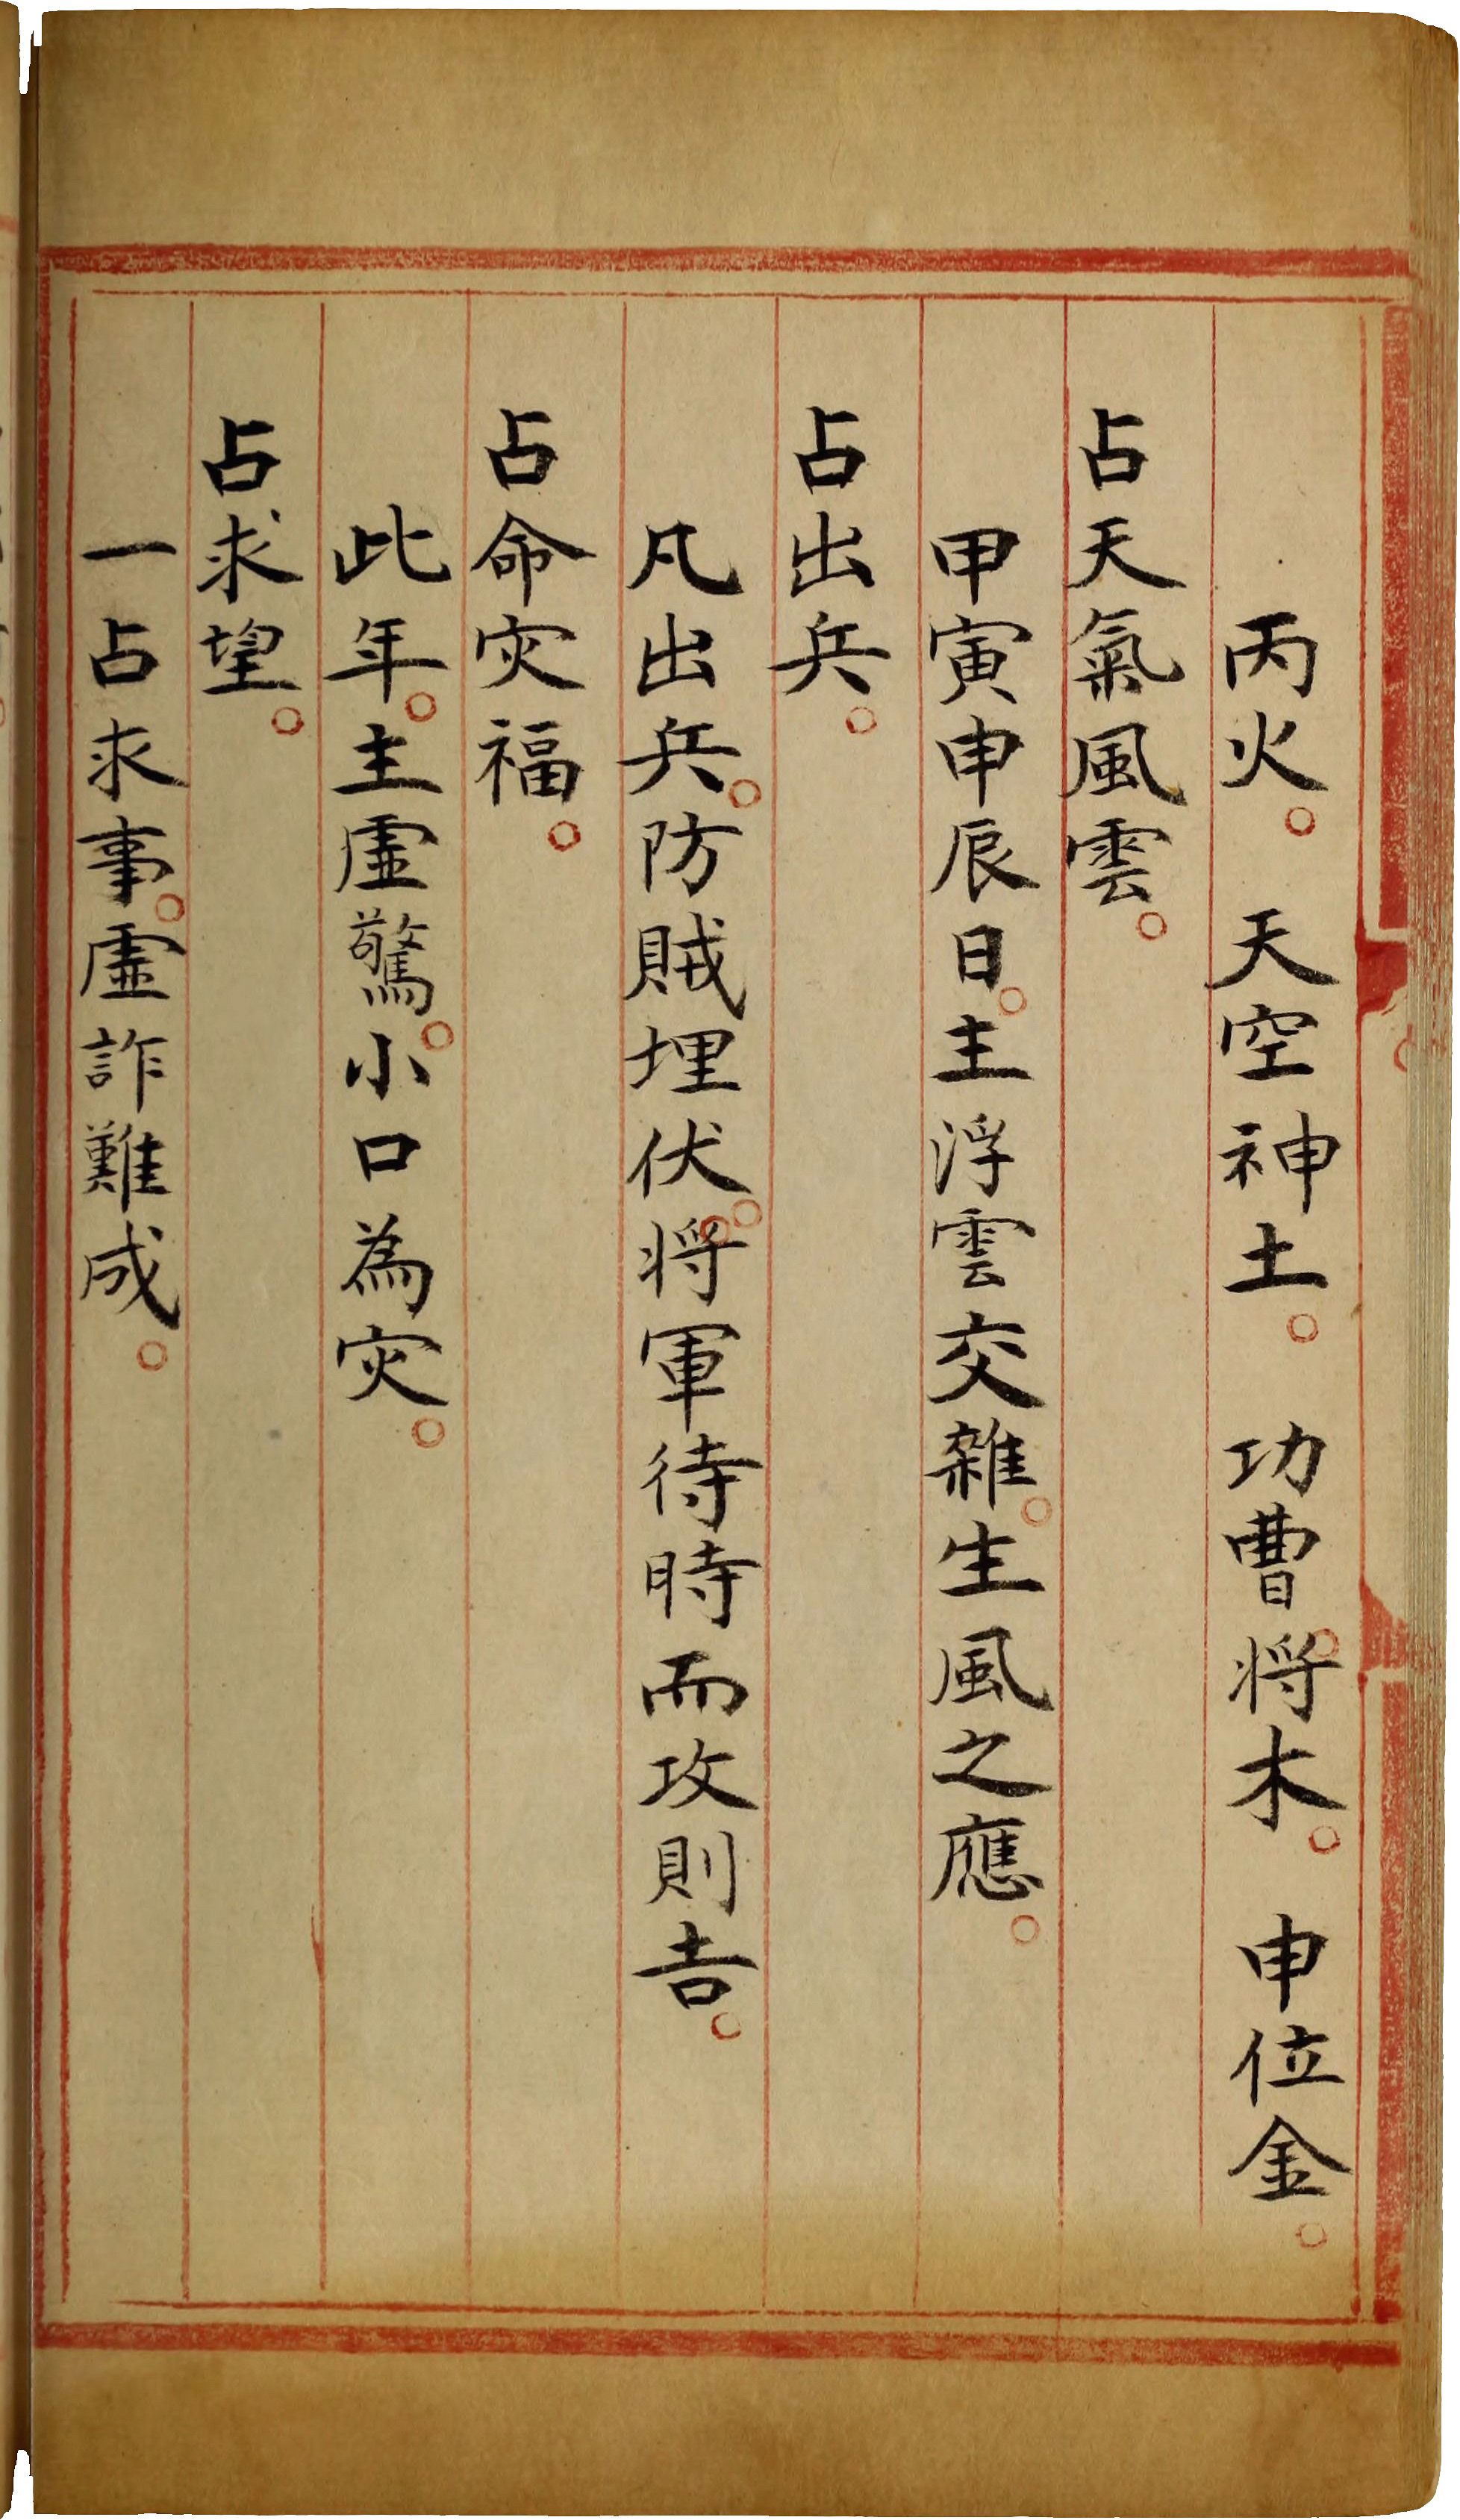 丙火。天空神土。功曹。將木。申位金。
占天氣風雲。
甲寅申辰日。主浮雲交雜。生風之應。
占出兵。
凡出兵。防賊埋伏。將軍待時而攻則吉。
占命灾福。
此年。主虛驚。小口為灾。
占求望。
一占求事。虛詐難成。